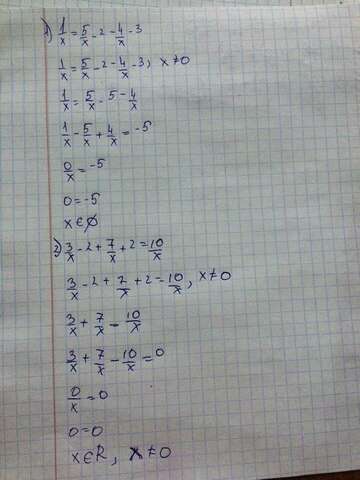 1) 1/x = 5/x - 2 - 4/x - 3
1/x = 5/x - 2 - 4/x - 3, x ≠ 0
1/x = 5/x - 5 - 4/x
1/x - 5/x + 4/x = -5
0/x = -5
0 = -5
x ∈ ∅
2) 3/x - 2 + 7/x + 2 = 10/x
3/x - 2 + 7/x + 2 = 10/x, x ≠ 0
3/x + 7/x = 10/x
3/x + 7/x - 10/x = 0
0/x = 0
0 = 0
x ∈ R, x ≠ 0